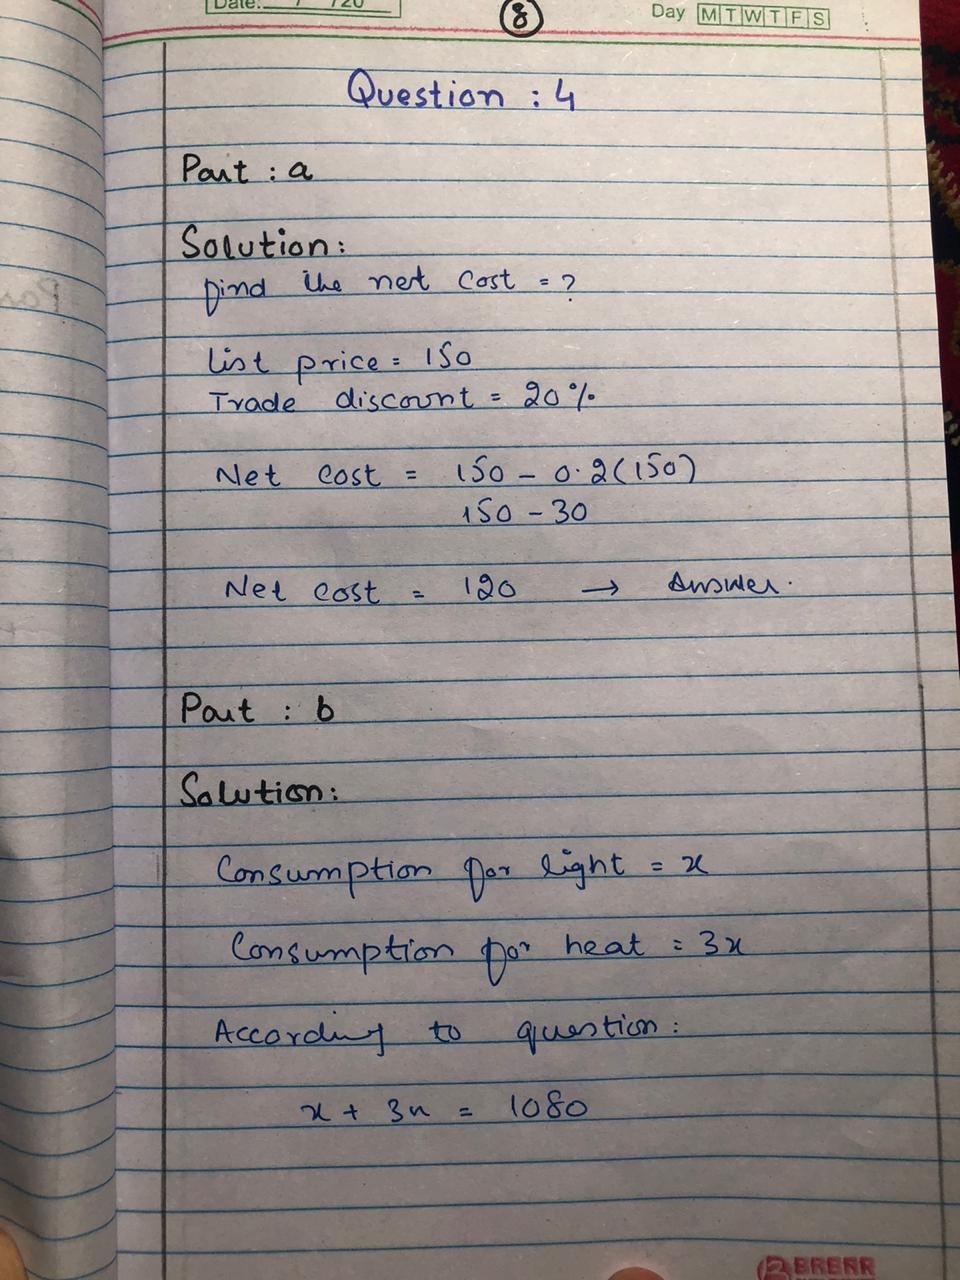 Date: / /20
8
Day M T W T F S
Question : 4
Part : a
Solution:
find the net cost = ?
list price = 150
Trade discount = 20%
Net cost = 150 - 0.2(150)
150 - 30
Net cost = 120 → Answer.
Part : b
Solution:
Consumption for light = x
Consumption for heat = 3x
According to question:
x + 3x = 1080